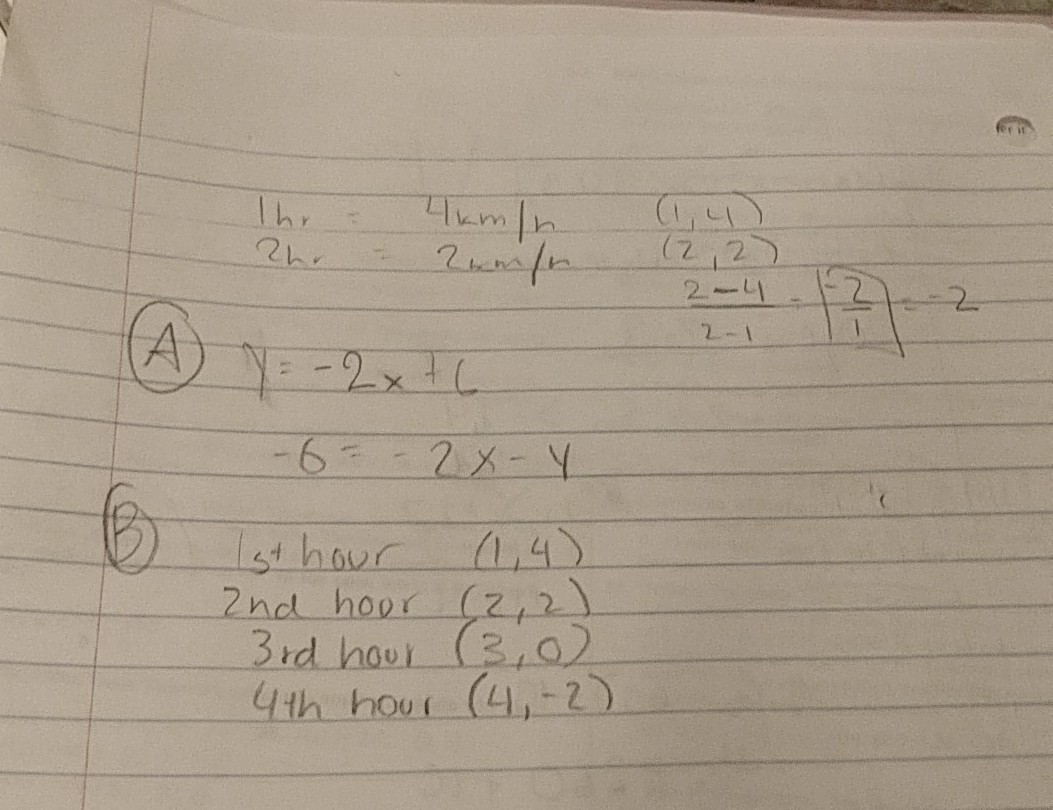 1hr = 4km/h (1,4)
2hr = 2km/h (2,2)
2-4/2-1 = -2/1 = -2
A y = -2x + 6
-6 = -2x - y
B
1st hour (1,4)
2nd hour (2,2)
3rd hour (3,0)
4th hour (4,-2)